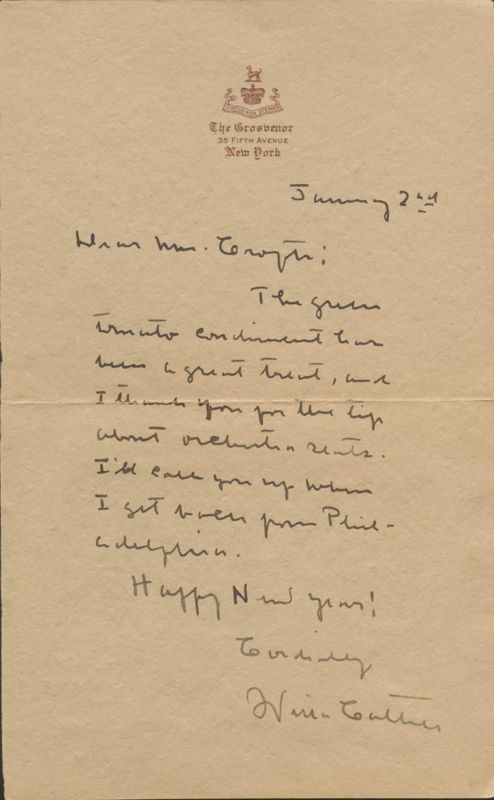 The Grosvenor
35 FIFTH AVENUE
New York
January 2nd
Dear Mr. Crofts:
The green
tomato condiment has
been a great treat, and
I thank you for the tip
about orchestra seats.
I'll call you up when
I get back from Phil-
adelphia.
Happy New Year!
Cordially
Willa Cather